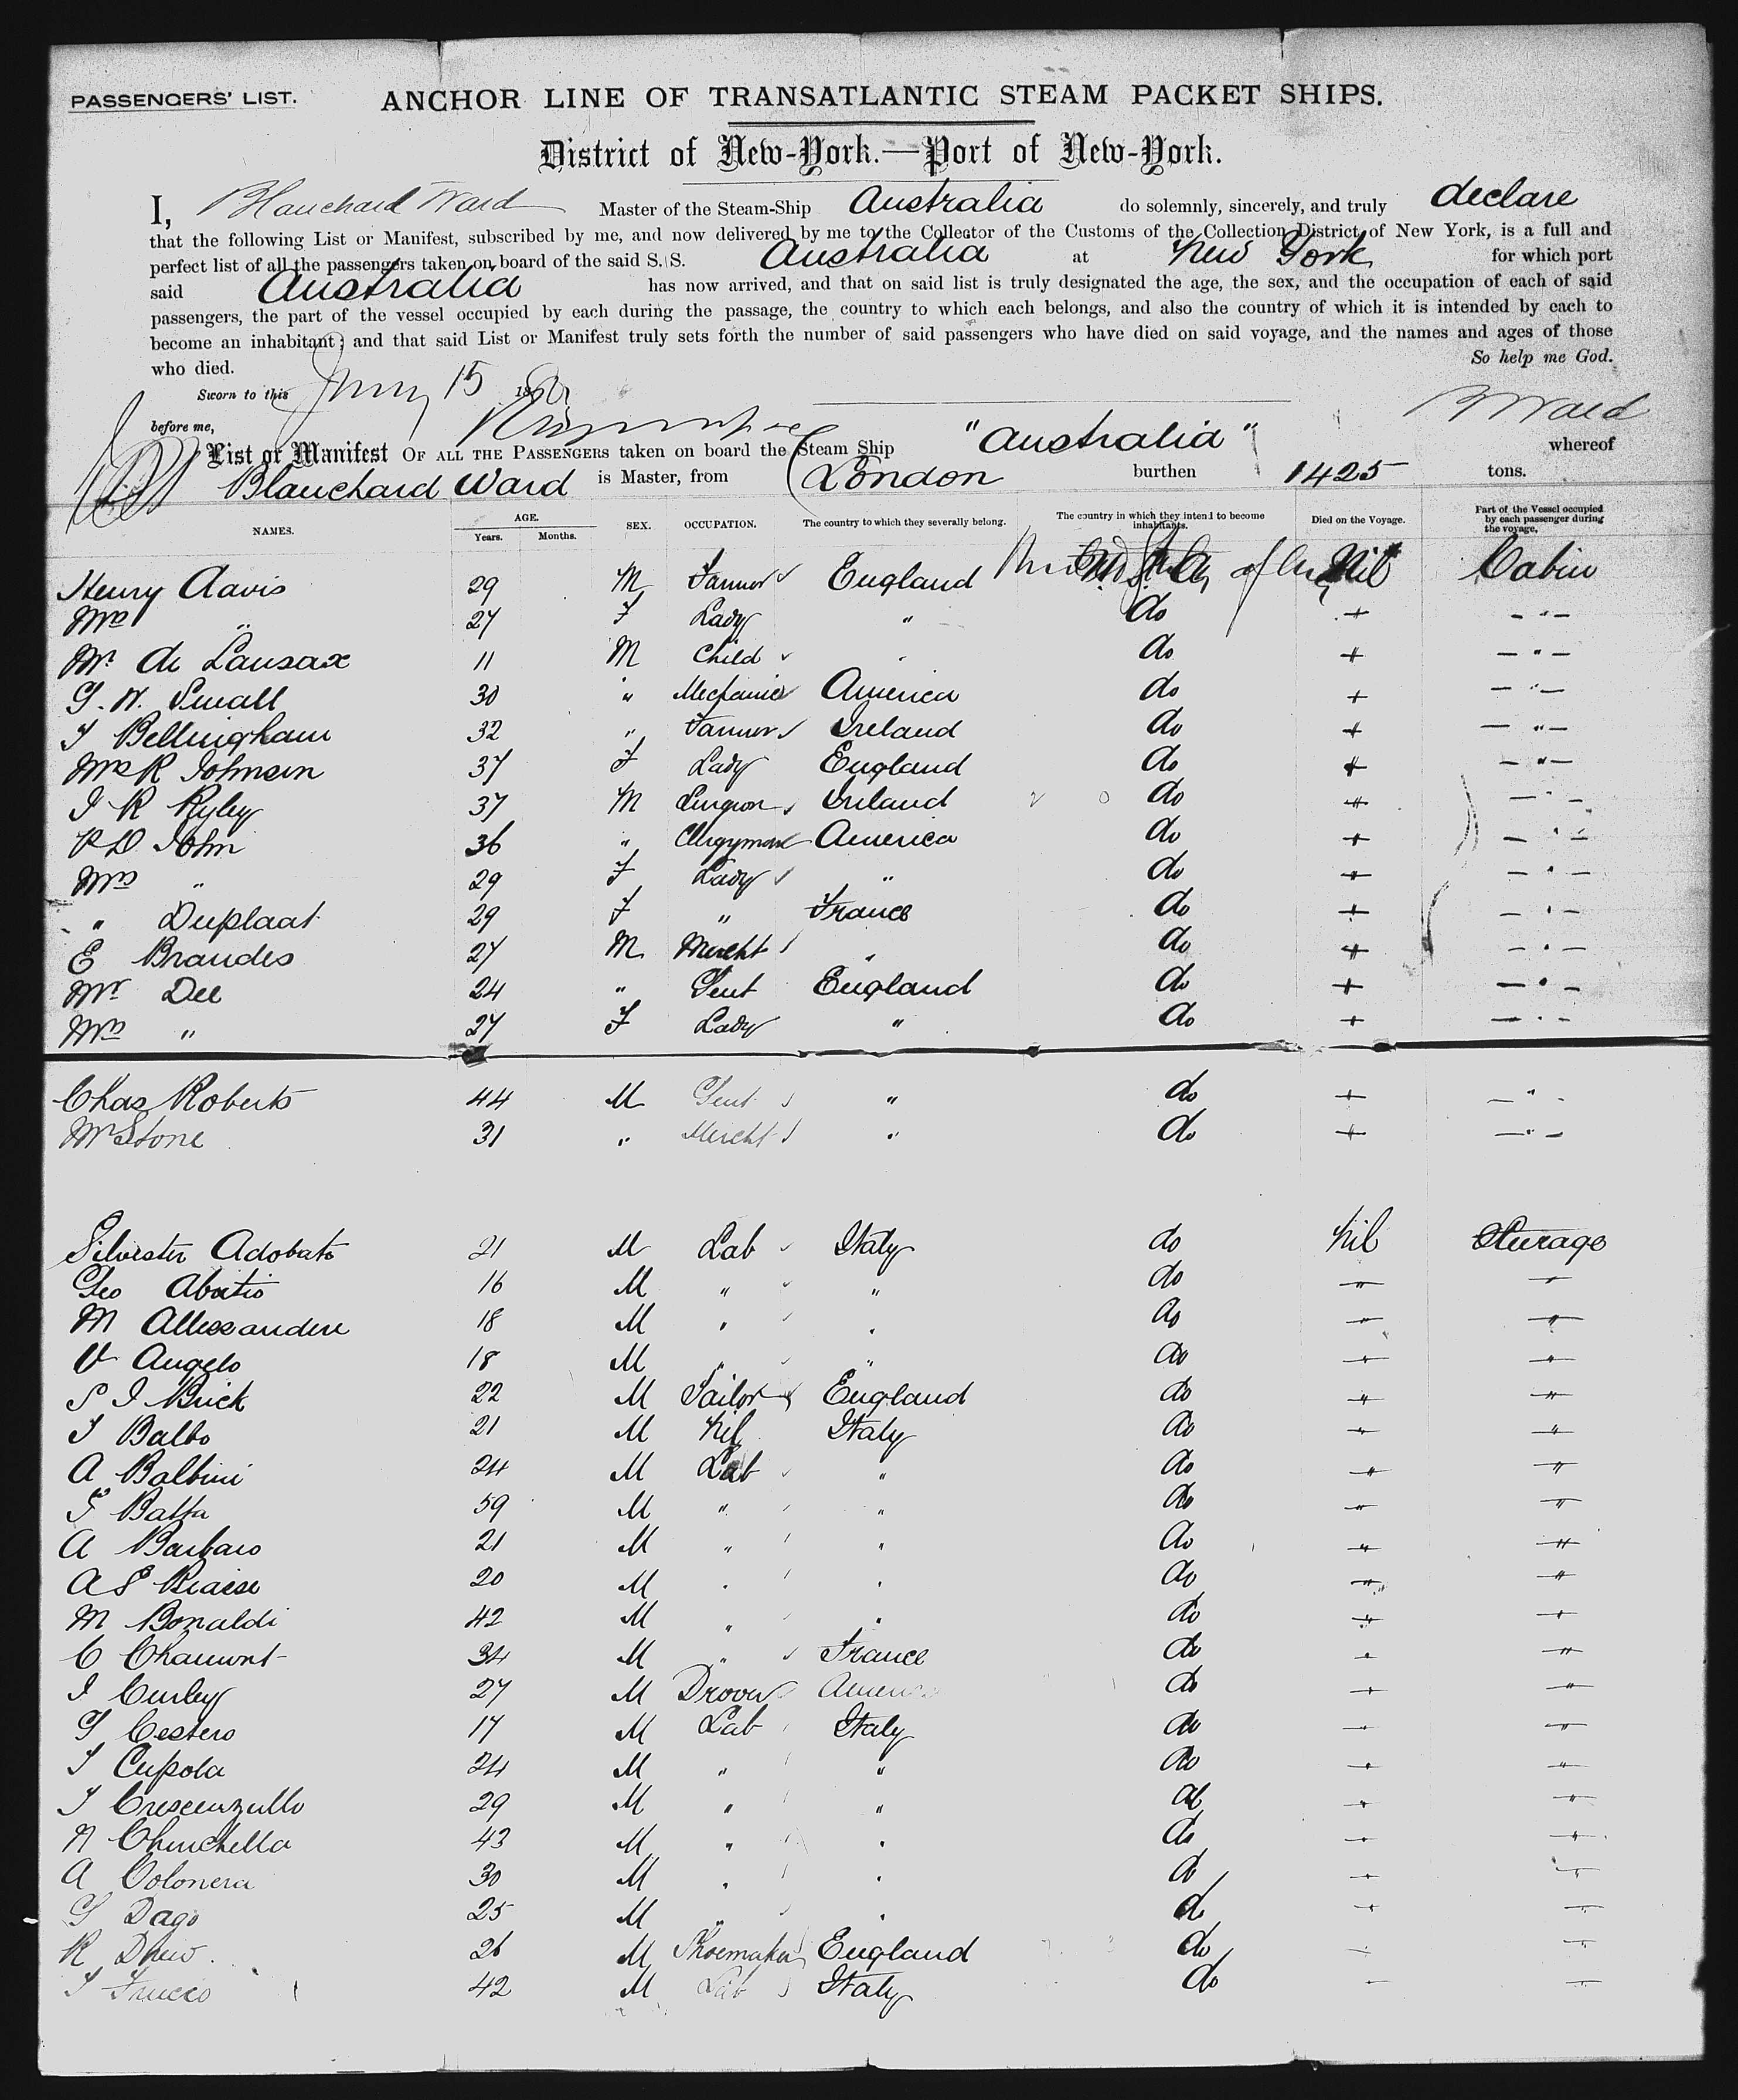 PASSENGERS' LIST.
ANCHOR LINE OF TRANSATLANTIC STEAM PACKET SHIPS.
District of New-York.—Port of New-York.
I, Blanchard Ward Master of the Steam-Ship Australia do solemnly, sincerely, and truly declare
that the following List or Manifest, subscribed by me, and now delivered by me to the Collector of the Customs of the Collection District of New York, is a full and
perfect list of all the passengers taken on board of the said S. S. Australia at New York for which port
said Australia has now arrived, and that on said list is truly designated the age, the sex, and the occupation of each of said
passengers, the part of the vessel occupied by each during the passage, the country to which each belongs, and also the country of which it is intended by each to
become an inhabitant; and that said List or Manifest truly sets forth the number of said passengers who have died on said voyage, and the names and ages of those
who died. So help me God.
Sworn to this 15 18
before me, B Ward
List or Manifest OF ALL THE PASSENGERS taken on board the Steam Ship "Australia" whereof
Blanchard Ward is Master, from London burthen 1425 tons.
NAMES. AGE. Years. Months. SEX. OCCUPATION. The country to which they severally belong. The country in which they intend to become inhabitants. Died on the Voyage. Part of the Vessel occupied by each passenger during the voyage.
Henry Davis 29 M Farmer England Nil Cabin
Mrs " 27 F Lady " do " "
Mr de Lausax 11 M Child " do " "
G. W. Small 30 " Mechanic America do " "
T Bellingham 32 " Farmer Ireland do " "
Mrs R Johnson 37 F Lady England do " "
J R Ryley 37 M Surgeon Ireland do " "
R D John 36 " Clergyman America do " "
Mrs " 29 F Lady " do " "
" Duplaat 29 F " France do " "
E Brandes 27 M Mercht " do " "
Mr Dee 24 " Gent England do " "
Mrs " 27 F Lady " do " "
Chas Roberts 44 M Gent " do " "
Mr Stone 31 " Mercht " do " "
Silvester Adobato 21 M Lab Italy do Nil Steerage
Geo Abatio 16 M " " do " "
M Allessandere 18 M " " do " "
V Angelo 18 M " " do " "
S J Brick 22 M Sailor England do " "
T Balbo 21 M Nil Italy do " "
A Balbini 24 M Lab " do " "
G Batta 59 M " " do " "
A Barbaro 21 M " " do " "
A S Biaise 20 M " " do " "
M Bonaldi 42 M " " do " "
C Chaumont 34 M " France do " "
J Curley 27 M Drover America do " "
G Cestero 17 M Lab Italy do " "
T Cupola 24 M " " do " "
T Crescenzullo 29 M " " do " "
N Chinchella 43 M " " do " "
A Colonera 30 M " " do " "
G Dago 25 M " " do " "
R Drew 26 M Shoemaker England do " "
T Frucco 42 M Lab Italy do " "